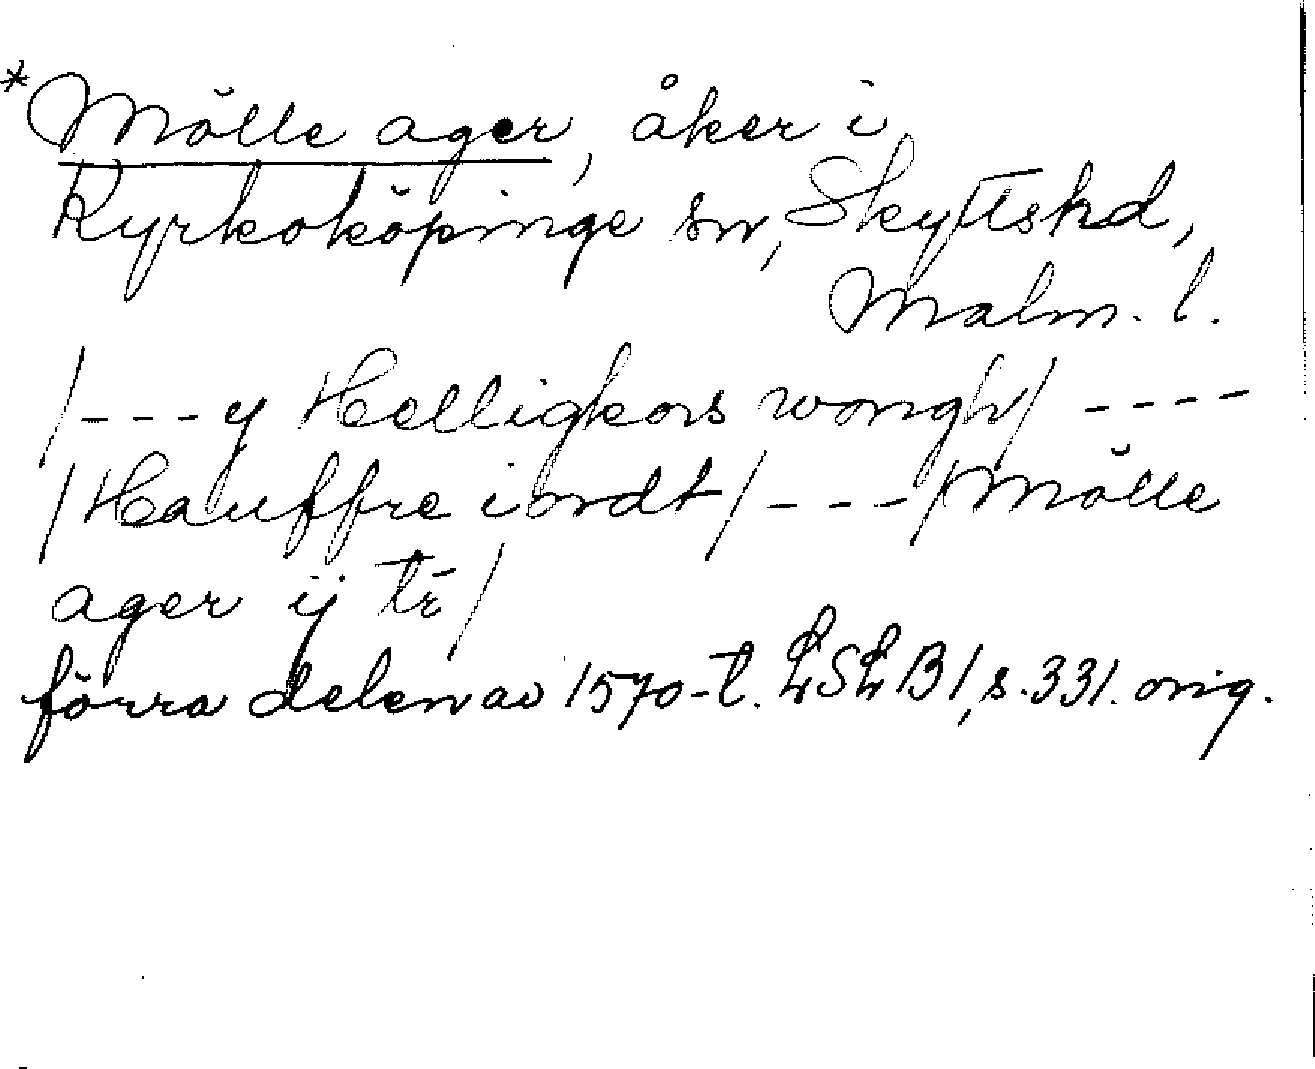 *Mölle ager, åker i
Kyrkoköpinge sn, Skyttshd,
Malm. l.
/---y Helligkors wongh/ ----
/Hauffre iordt/---/Mölle
ager ij tr̄/
förra delen av 1570-t. LSLB1, s. 331. orig.